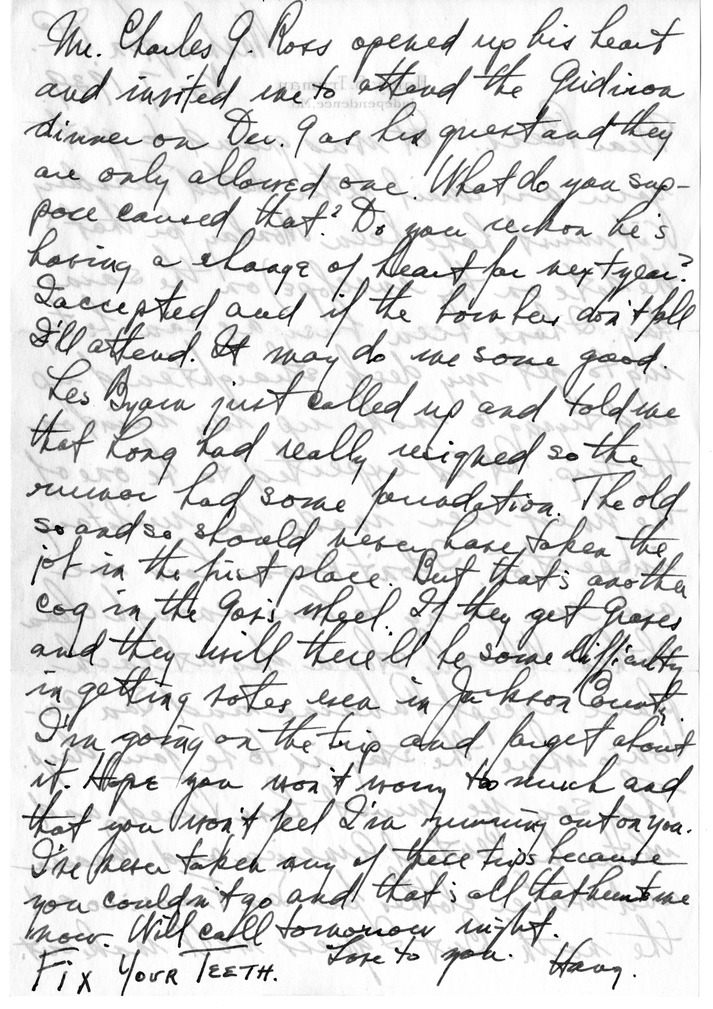 Mr. Charles G. Ross opened up his heart
and invited me to attend the Gridiron
dinner on Dec. 9 as his guest and they
are only allowed one. What do you sup-
pose caused that? Do you reckon he's
having a change of heart for next year?
I accepted and if the bombers don't fall
I'll attend. It may do me some good.
Les Byam just called up and told me
that Long had really resigned so the
rumor had some foundation. The old
so and so should never have taken the
job in the first place. But that's another
cog in the Gov's wheel. If they get Graves
and they will there'll be some difficulty
in getting votes even in Jackson County.
I'm going on the trip and forget about
it. Hope you won't worry too much and
that you won't feel I'm running out on you.
I've never taken any of these trips because
you couldn't go and that's all that hurts me
now. Will call tomorrow night.
Love to you. Harry.
FIX YOUR TEETH.